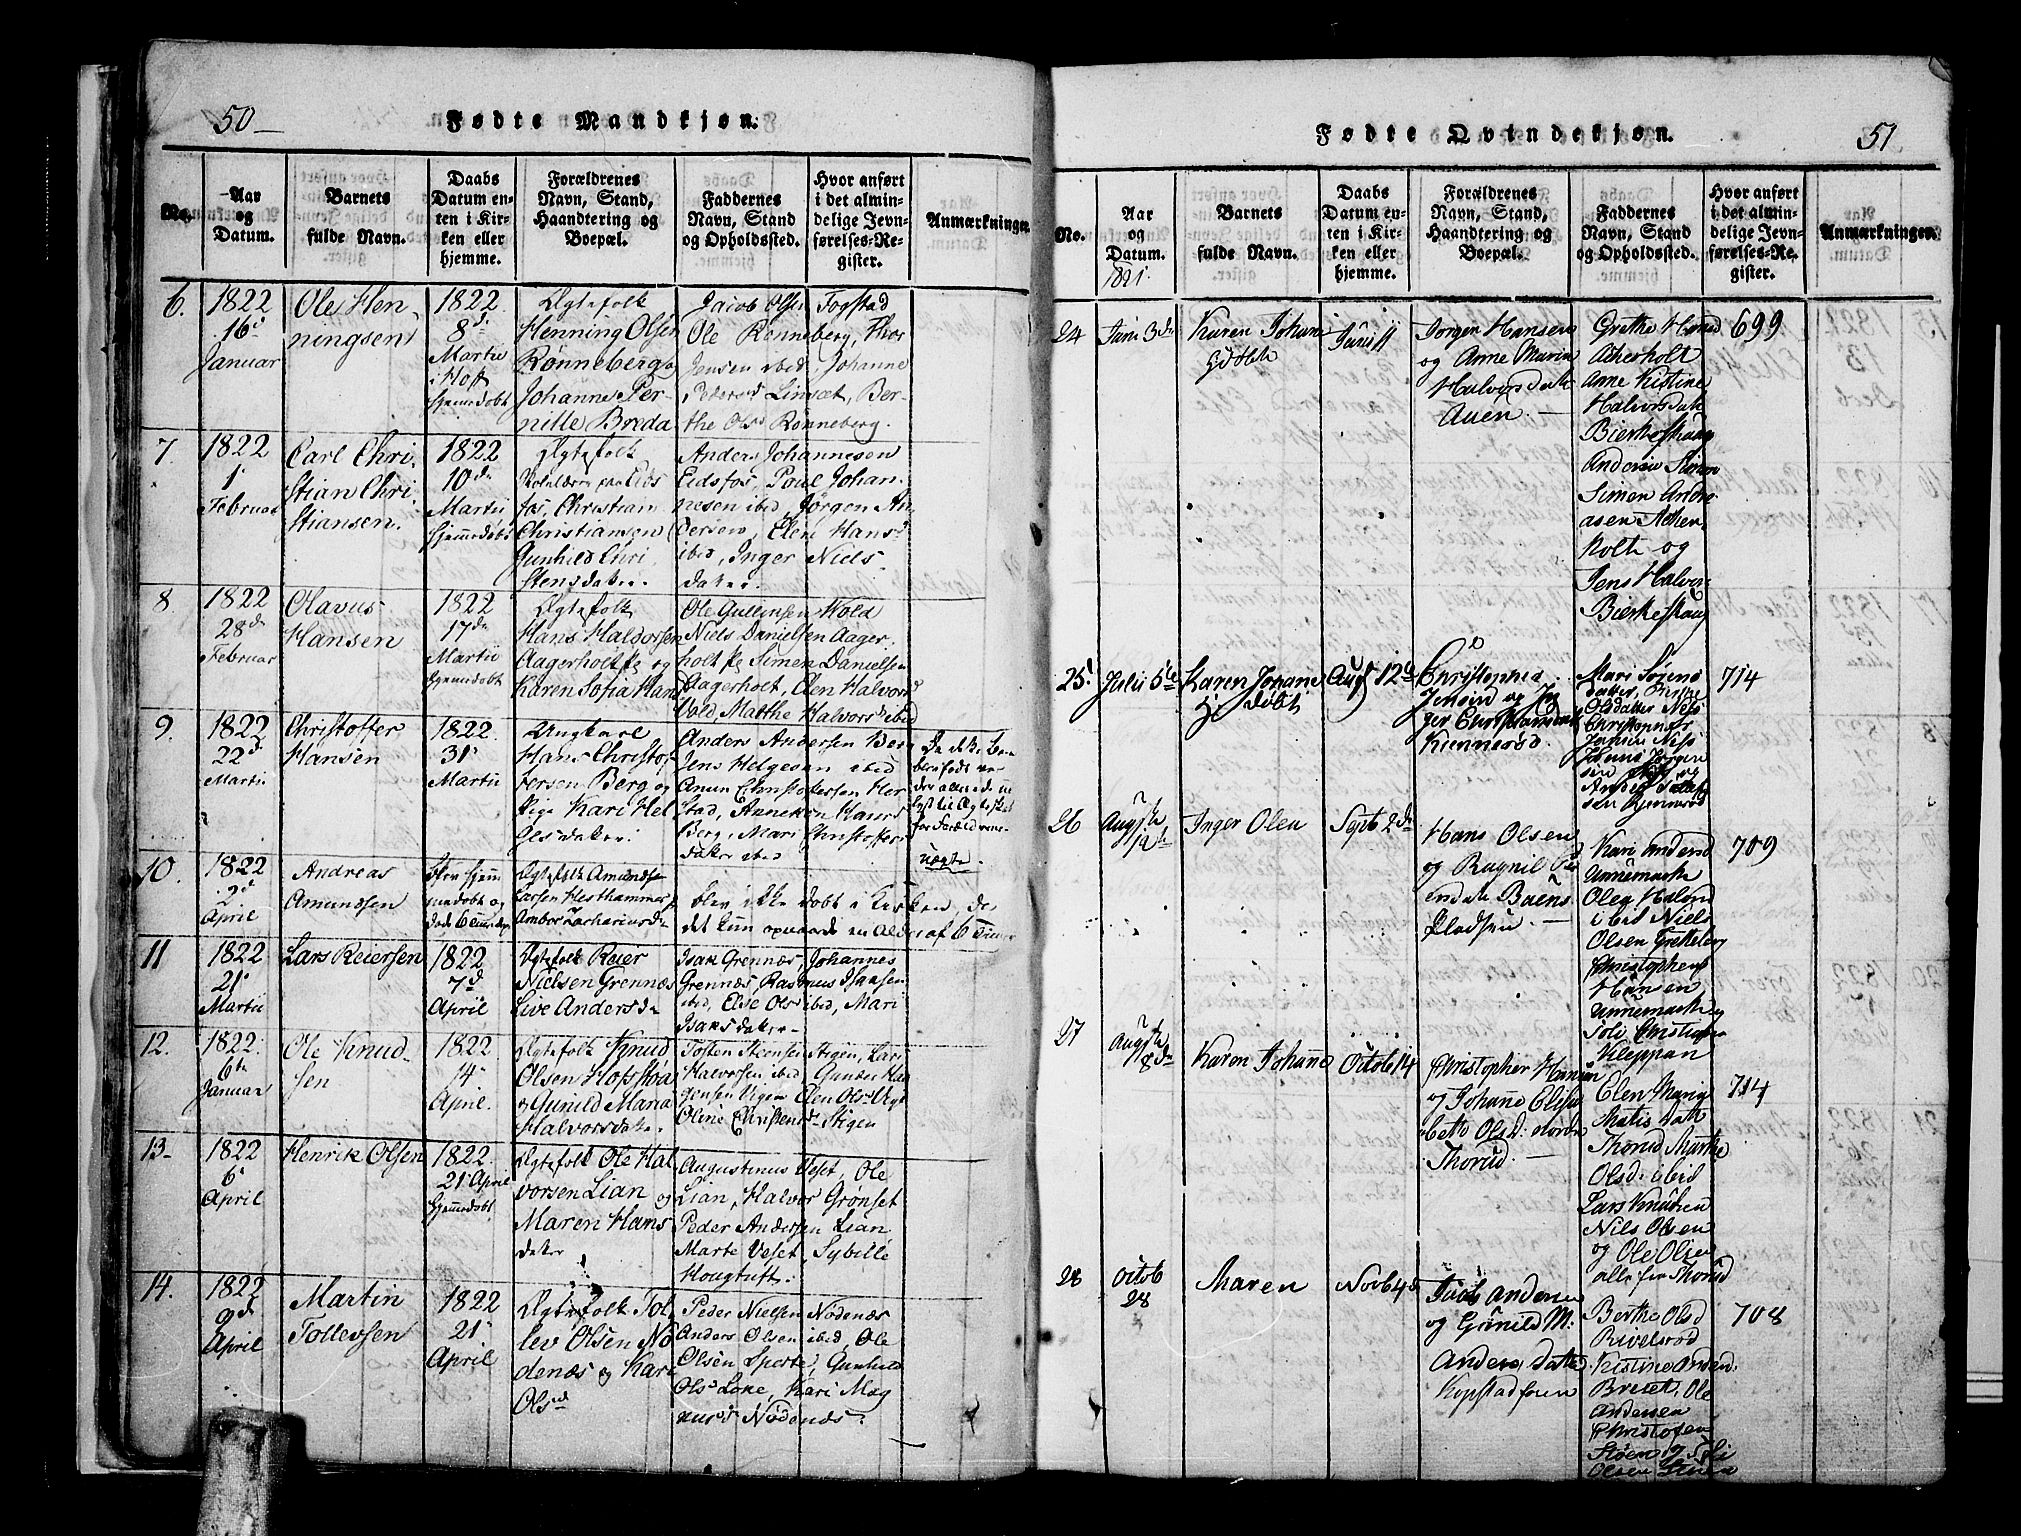 50
Fødte Mandkjøn.
No.
Aar
og
Datum.
Barnets
fulde Navn.
Daabs
Datum en-
ten i Kir-
ken eller
hjemme.
Forældrenes
Navn, Stand,
Haandtering og
Boepæl.
Faddernes
Navn, Stand
og Opholdssted.
Hvor anført
i det almin-
delige Jevn-
førelses-Re-
gister.
Anmærkninger.
6.
1822
16
Januar
Ole Hen-
ningsen
1822
8de
Martii
i Hof
hjemmedøbt
Ægtefolk
Henning Olsen
Rønneberg og
Johanne Per-
nille Breda
Jacob Olsen Fogstad
Ole Rønneberg, Thor
Jensen ibed, Johanne
Pedersd Linsæt, Ber-
the Olsd Rønneberg.
7.
1822
1
Februar
Carl Chri-
stian Chri-
stiansen.
1822
10de
Martii
hjemmedøbt
Ægtefolk
fos, Christian
Christiansen
Gunhild Chri
stensdatter.
Anders Johannesen
Eidsfos, Poul Johan-
nesen ibed, Jørgen An-
dersen, Eleni Hansd
ibed, Inger Niels-
datter.
8
1822
28de
Februar
Olavus
Hansen
1822
17de
Martii
hjemmedøbt
Ægtefolk
Hans Haldorsen
Aagerholt og
Karen Sofia Hans
Ole Gullinsen Wold
Niels Danielsen Aager-
holt, Simen Danielsen
Aagerholt, Elen Halvors
Vold Marthe Halvorsd ibed
9.
1822
22de
Martii
Christoffer
Hansen
1822.
31
Martii
Ungkarl
Hans Christof-
fersen Berg og
Pige Kari Hel
gesdatter.
Anders Andersen Berg
Jens Helgesen ibed
Amun Christofersen Hor
stad, Anneken Hansd
Berg, Mari Christoffers
datter ibed
Da dette
for Forældrene
uægte.
10.
1822
2de
April
Andreas
Amundsen
Blev hjem
medøbt og
døde 6 Timer
Ægtefolk Amund
Larsen Hesthammer
Ambor Zachariasd
Blev ikke døbt i Kirken, da
det kun opnaaede en Alder af 6 Timer
11
1822
21
Martii
Lars Reiersen
1822
7de
April
Ægtefolk Reier
Nielsen Grennæs
Live Andersd
Isak Grennæs, Johannes
Grennæs, Rasmus Hansen
ibed, Else Olsd ibed, Mari
Isaksdatter
12.
1822.
6te
Januar
Ole Knud-
sen
1822
14
April.
Ægtefolk Knud
Olsen Hofskoa
og Gunild Maria
Halvorsdatter.
Tosten Steensen Stigen, Lars
Halvorsen ibed Gunder Haa
gensen Vigen Elen Olsd
Oline Christensd Stigen
13
1822
6
April
Henrik Olsen
1822.
21 April
hjemmedøbt
Ægtefolk Ole Hal
vorsen Lian og
Maren Hans
datter
Augustinus Veset, Ole
Lian, Halvor Grønset
Peder Andersen Lian
Marte Veset, Sybille
Hougtuft.
14.
1822
9de
April
Martin
Tollevsen
1822
21
April
Ægtefolk Tol
lev Olsen Nø
denæs og Kari
Olsd
Peder Nielsen Nødenæs
Anders Olsen ibed, Ole
Olsen Sperte, Gunhild
Olsd Loke, Kari Mag
nusd Nødenæs.
Fødte Qvindekjøn.
51
No.
Aar
og
Datum.
1821.
Barnets
fulde Navn.
Daabs
Datum en-
ten i Kir-
ken eller
hjemme.
Forældrenes
Navn, Stand,
Haandtering og
Boepæl.
Faddernes
Navn, Stand
og Opholdssted.
Hvor anført
i det almin-
delige Jevn-
førelses-Re-
gister.
Anmærkninger.
24
Juni 3de
Karen Johane
Juni 11
Jørgen Hansen
og Anne Maria
Halvorsdatt
Auen.
Grethe
Ackerholt
Anne Kistine
Halvorsdatt
Bierkeskaug
Simen Andre
asen Acker
holt og
Jens Halvor
Bierkeskaug
699
25
Julii 5te
Karen Johane
hj døbt
Aug 12te
Christopher
Jensen og In
ger Christiansdatt
Kiennerød.
Mari Sørens
datter,
Olsdatter
Christopher
Jensen
714
26
Augste
Inger Olen
Septb 2de
Hans Olsen
og Ragnil Ped
Baens
Pladsen
Kari Andersd
Annemarke
i bed Niels
Olsen Gretteberg
Christopher
Hansen
Annemarke og
Kleppan
709
27
Augste
8de
Karen Johane
Octob 14
Christopher Hansen
og Johane Elisa
beth Olsd
Thorud.
Elen Marig
Matis datt
Thorud Marthe
Olsd i bed
Lars Knudsen
Nils Olsen
og Ole Olsen
alle fra Thorud
714
28
Octob
28
Maren
Novb 4de
Anders
og Gunild M:
Anders datt
Kopstadeien
Berthe Olsd
Rivelsrød
Kistine Andersd
Breset, Ole
Andersen
Christofer
Støen og
Olsen
708